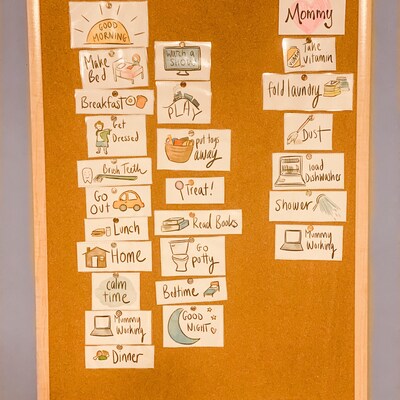 GOOD
MORNING
Make
Bed
Breakfast
Get
Dressed
Brush Teeth
Go
Out
Lunch
Home
calm
time
Mummy
Working
Dinner
Watch a
PLAY
put toys
away
Treat!
Read Books
Go
potty
Bedtime
GOOD
NIGHT
Mommy
Take
vitamin
fold laundry
Dust
load
Dishwasher
Shower
Mummy
Working